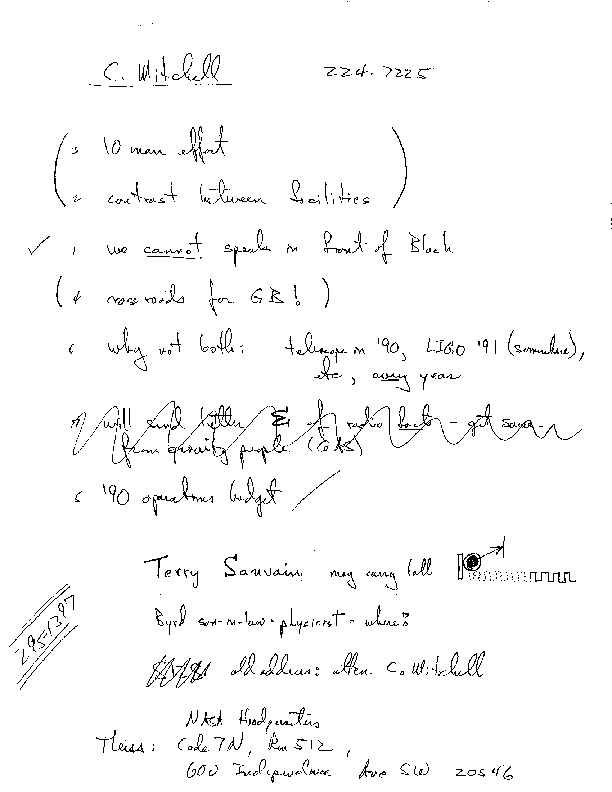 C. Mitchell 224-7225
10 man effort
contrast between facilities
we cannot speak in front of Block
for GB! )
why not both: telescope in '90, LIGO '91 (somewhere),
etc, every year
will send letter of radio - get same
from gravity people
'90 operations budget
Terry Sauvain may carry ball
Byrd son-in-law - physicist - where?
295-1397
old address: attn. C. Mitchell
NASA Headquarters
Theiss: Code 7N, Rm 512,
600 Independence Ave SW 20546